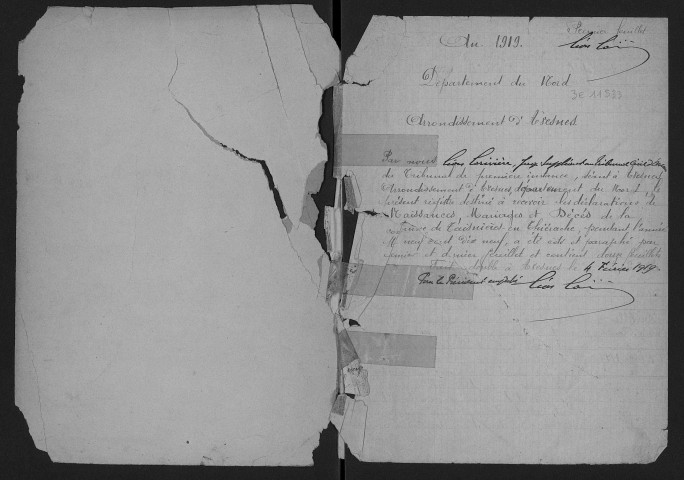 Premier feuillet
An 1919.
Département du Nord
3E 11933
Arrondissement d'Avesnes
Par nous Juge Suppléant au Tribunal Civil
du Tribunal de première instance, séant à Avesnes,
Arrondissement d'Avesnes, département du Nord, le
présent registre destiné à recevoir les déclarations de
Naissances, Mariages et Décès de la
commune de Taisnières-en-Thiérache, pendant l'année
neuf cent dix neuf, a été coté et paraphé par
premier et dernier feuillet et contient feuillets
à Avesnes le 4 Février 1919.
Pour le Président empêché